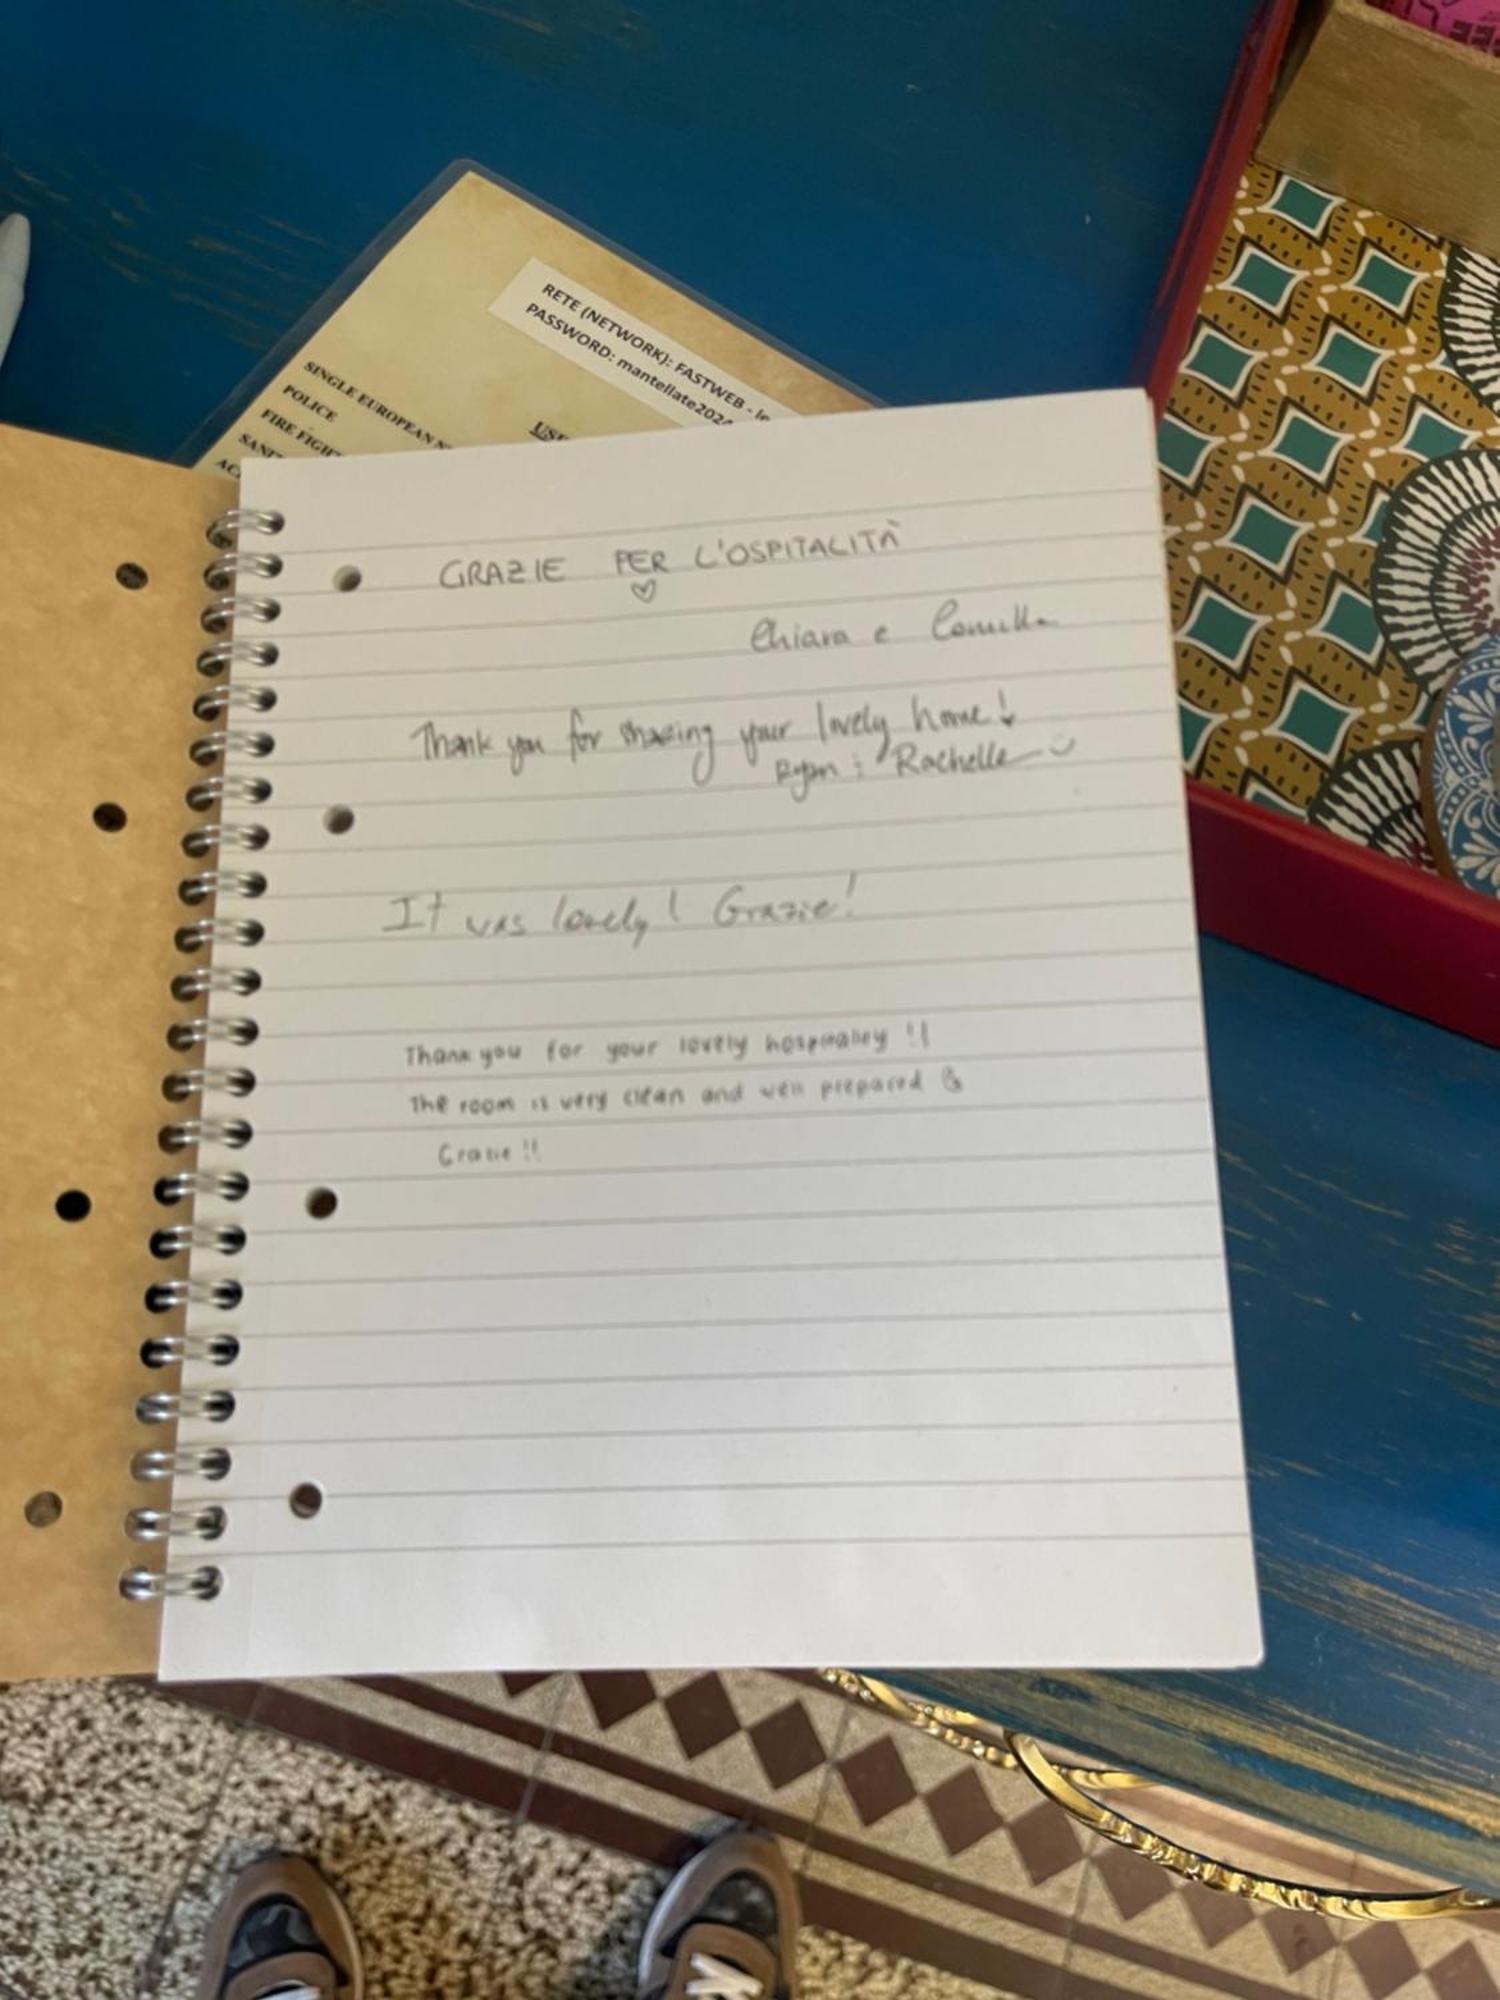 RETE (NETWORK): FASTWEB - le
PASSWORD: mantellate202
SINGLE EUROPEAN N
POLICE
FIRE FIGH
SANI
AC
USE
GRAZIE PER L'OSPITALITÀ
♡
Chiara e Camilla
Thank you for sharing your lovely home!
Ryan & Rachelle
It was lovely! Grazie!
Thank you for your lovely hospitality !!
The room is very clean and well prepared
Grazie !!